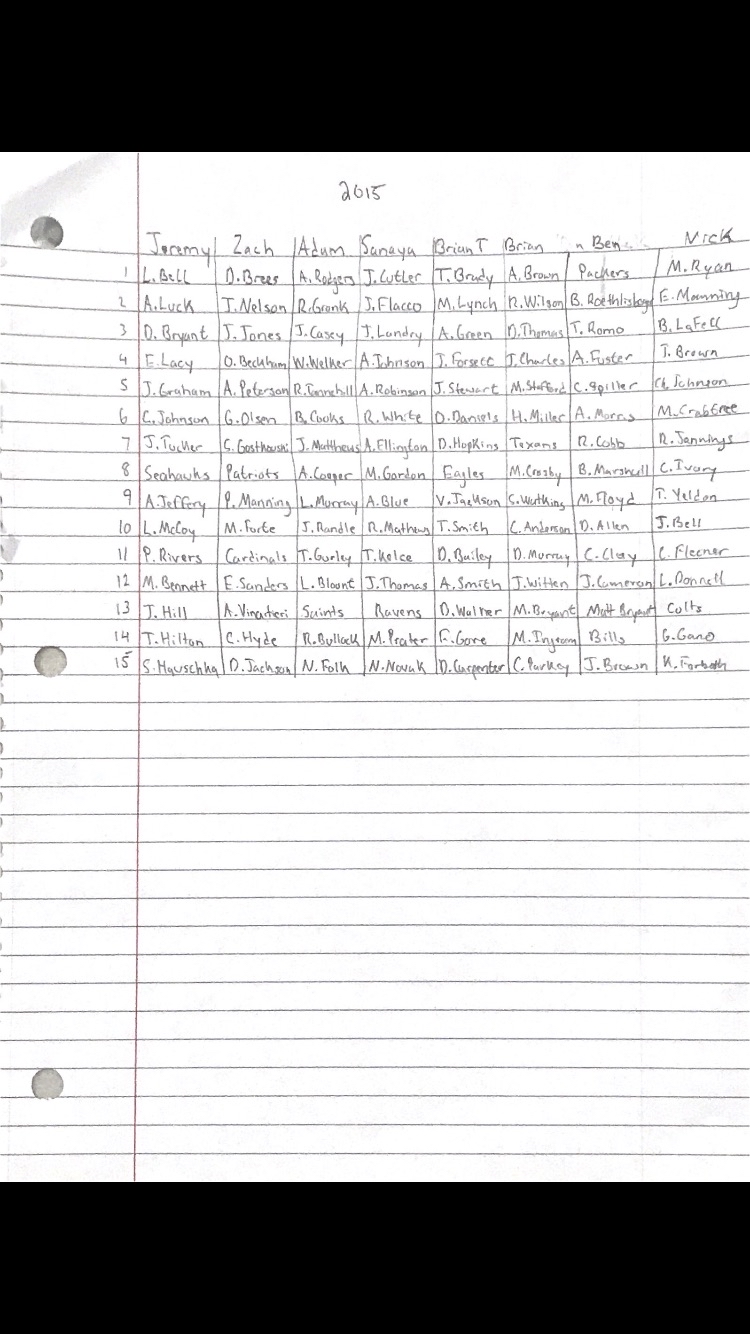 2015
Jeremy Zach Adam Sanaya Brian T Brian n Ben Nick
1 L. Bell D. Brees A. Rodgers J. Cutler T. Brady A. Brown Packers M. Ryan
2 A. Luck J. Nelson R. Gronk J. Flacco M. Lynch R. Wilson B. Roethlisberger E. Manning
3 D. Bryant J. Jones J. Casey J. Landry A. Green D. Thomas T. Romo B. LaFell
4 E. Lacy O. Beckham W. Welker A. Johnson J. Forsett J. Charles A. Foster J. Brown
5 J. Graham A. Peterson R. Tannehill A. Robinson J. Stewart M. Stafford C. Spiller Ch. Johnson
6 C. Johnson G. Olsen B. Cooks R. White O. Daniels H. Miller A. Morris M. Crabtree
7 J. Tucker S. Gostkowski J. Matthews A. Ellington D. Hopkins Texans R. Cobb R. Jennings
8 Seahawks Patriots A. Cooper M. Gordon Eagles M. Crosby B. Marshall C. Ivory
9 A. Jeffery P. Manning L. Murray A. Blue V. Jackson S. Watkins M. Floyd T. Yeldon
10 L. McCoy M. Forte J. Randle R. Mathews T. Smith C. Anderson D. Allen J. Bell
11 P. Rivers Cardinals T. Gurley T. Kelce D. Bailey D. Murray C. Clay C. Fleener
12 M. Bennett E. Sanders L. Blount J. Thomas A. Smith J. Witten J. Cameron L. Donnell
13 J. Hill A. Vinatieri Saints Ravens D. Walker M. Bryant Matt Bryant Colts
14 T. Hilton C. Hyde R. Bullock M. Prater F. Gore M. Ingram Bills G. Gano
15 S. Hauschka D. Jackson N. Folk N. Novak D. Carpenter C. Parkey J. Brown K. Forbath